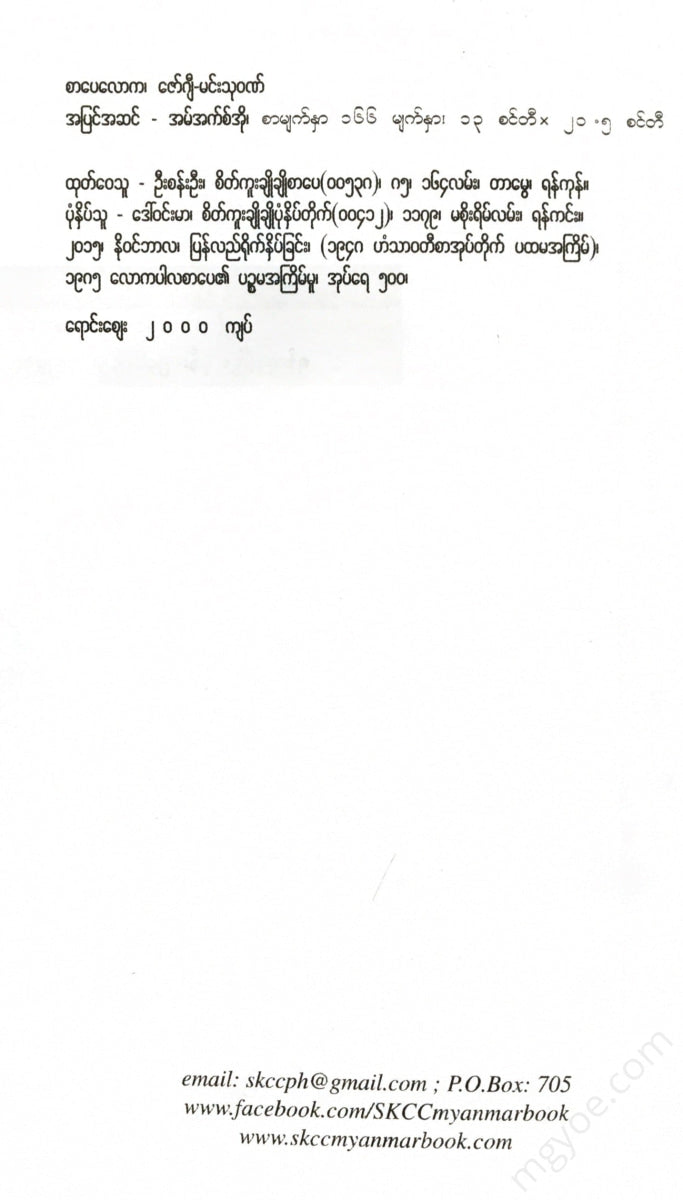 စာပေလောက၊ ဇော်ဂျီ-မင်းသုဝဏ်
အပြင်အဆင် - အမ်အက်စ်အို၊ စာမျက်နှာ ၁၆၆ မျက်နှာ၊ ၁၃ စင်တီ× ၂၀.၅ စင်တီ
ထုတ်ဝေသူ - ဦးစန်းဦး၊ စိတ်ကူးချိုချိုစာပေ(၀၀၅၃၈)၊ ၈၅၊ ၁၆၄လမ်း၊ တာမွေ၊ ရန်ကုန်။
ပုံနှိပ်သူ - ဒေါ်ဝင်းမာ၊ စိတ်ကူးချိုချိုပုံနှိပ်တိုက်(၀၀၄၁၂)၊ ၁၁၇၉၊ မစိုးရိမ်လမ်း၊ ရန်ကင်း။
၂၀၁၅၊ နိုဝင်ဘာလ၊ ပြန်လည်ရိုက်နှိပ်ခြင်း၊ (၁၉၄၈ ဟံသာဝတီစာအုပ်တိုက် ပထမအကြိမ်)၊
၁၉၈၅ လောကပါလစာပေ၏ ပဉ္စမအကြိမ်မူ၊ အုပ်ရေ ၅၀၀၊
ရောင်းဈေး ၂ ၀ ၀ ၀ ကျပ်
email: skccph@gmail.com ; P.O.Box: 705
www.facebook.com/SKCCmyanmarbook
www.skccmyanmarbook.com
mgyoe.com